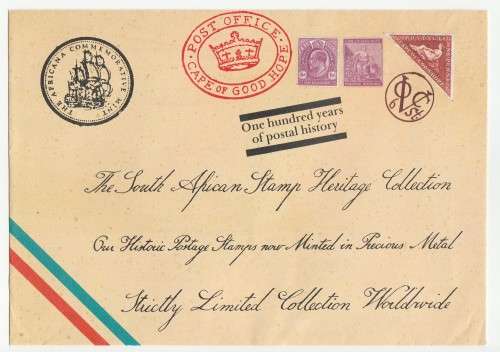 THE AFRICANA COMMEMORATIVE MINT
POST OFFICE
CAPE OF GOOD HOPE
One hundred years
of postal history
The South African Stamp Heritage Collection
Our Historic Postage Stamps now Minted in Precious Metal
Strictly Limited Collection Worldwide